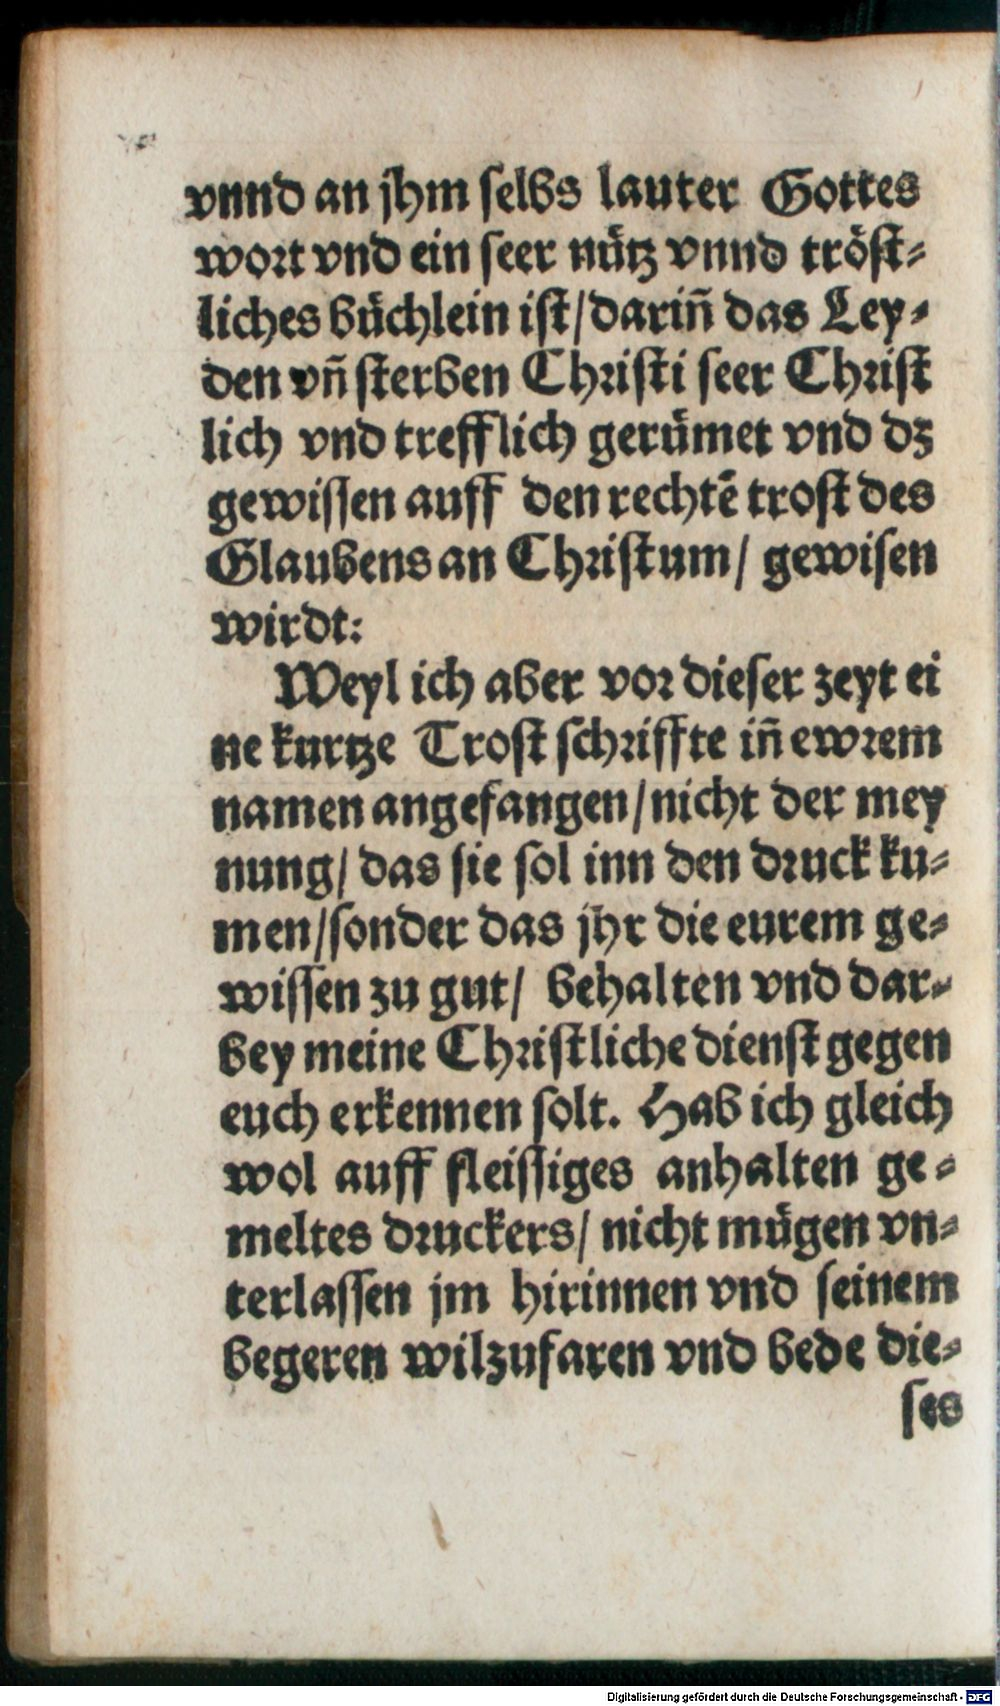 vnnd an jhm selbs lauter Gottes
wort vnd ein seer nütz vnnd tröst-
liches büchlein ist/darin̄ das Ley-
den vn̄ sterben Christi seer Christ
lich vnd trefflich gerümet vnd dz
gewissen auff den rechtē trost des
Glaubens an Christum/ gewisen
wirdt:
Weyl ich aber vor dieser zeyt ei
ne kurtze Trost schriffte in̄ ewrem
namen angefangen/nicht der mey
nung/ das sie sol inn den druck ku-
men/sonder das jhr die eurem ge-
wissen zu gut/ behalten vnd dar-
bey meine Christliche dienst gegen
euch erkennen solt. Hab ich gleich
wol auff fleissiges anhalten ge-
meltes druckers/ nicht mügen vn-
terlassen jm hirinnen vnd seinem
begeren wilzufaren vnd bede die-
ses
Digitalisierung gefördert durch die Deutsche Forschungsgemeinschaft - DFG